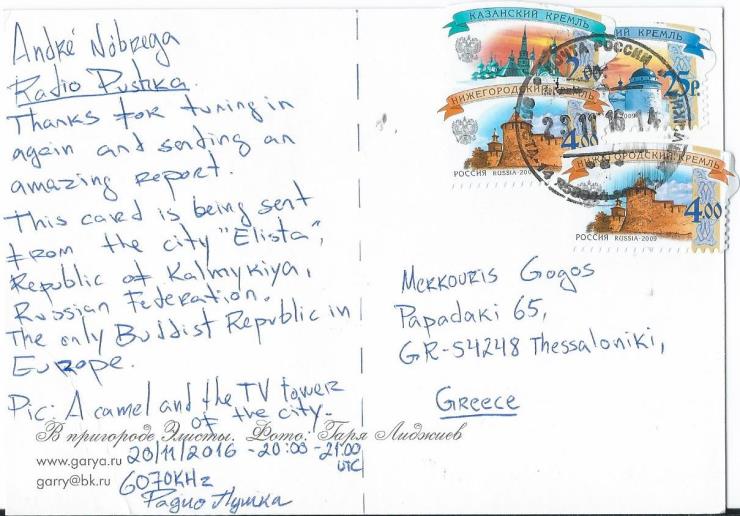 André Nóbrega
Radio Pushka.
Thanks for tuning in
again and sending an
amazing report.
This card is being sent
from the city "Elista",
Republic of Kalmykiya,
Russian Federation.
The only Buddist Republic in
Europe.
Pic: A camel and the TV tower
of the city.
В пригороде Элисты. Фото: Гаря Лиджиев
www.garya.ru
garry@bk.ru
20/11/2016 - 20:00 - 21:00
UTC
6070KHz
Радио Пушка
КАЗАНСКИЙ КРЕМЛЬ
КРЕМЛЬ
25р.
НИЖЕГОРОДСКИЙ КРЕМЛЬ
4.00
РОССИЯ RUSSIA-2009
2009
ПОЧТА РОССИИ
НИЖЕГОРОДСКИЙ КРЕМЛЬ
4.00
РОССИЯ RUSSIA-2009
Merkouris Gogos
Papadaki 65,
GR-54248 Thessaloniki,
Greece